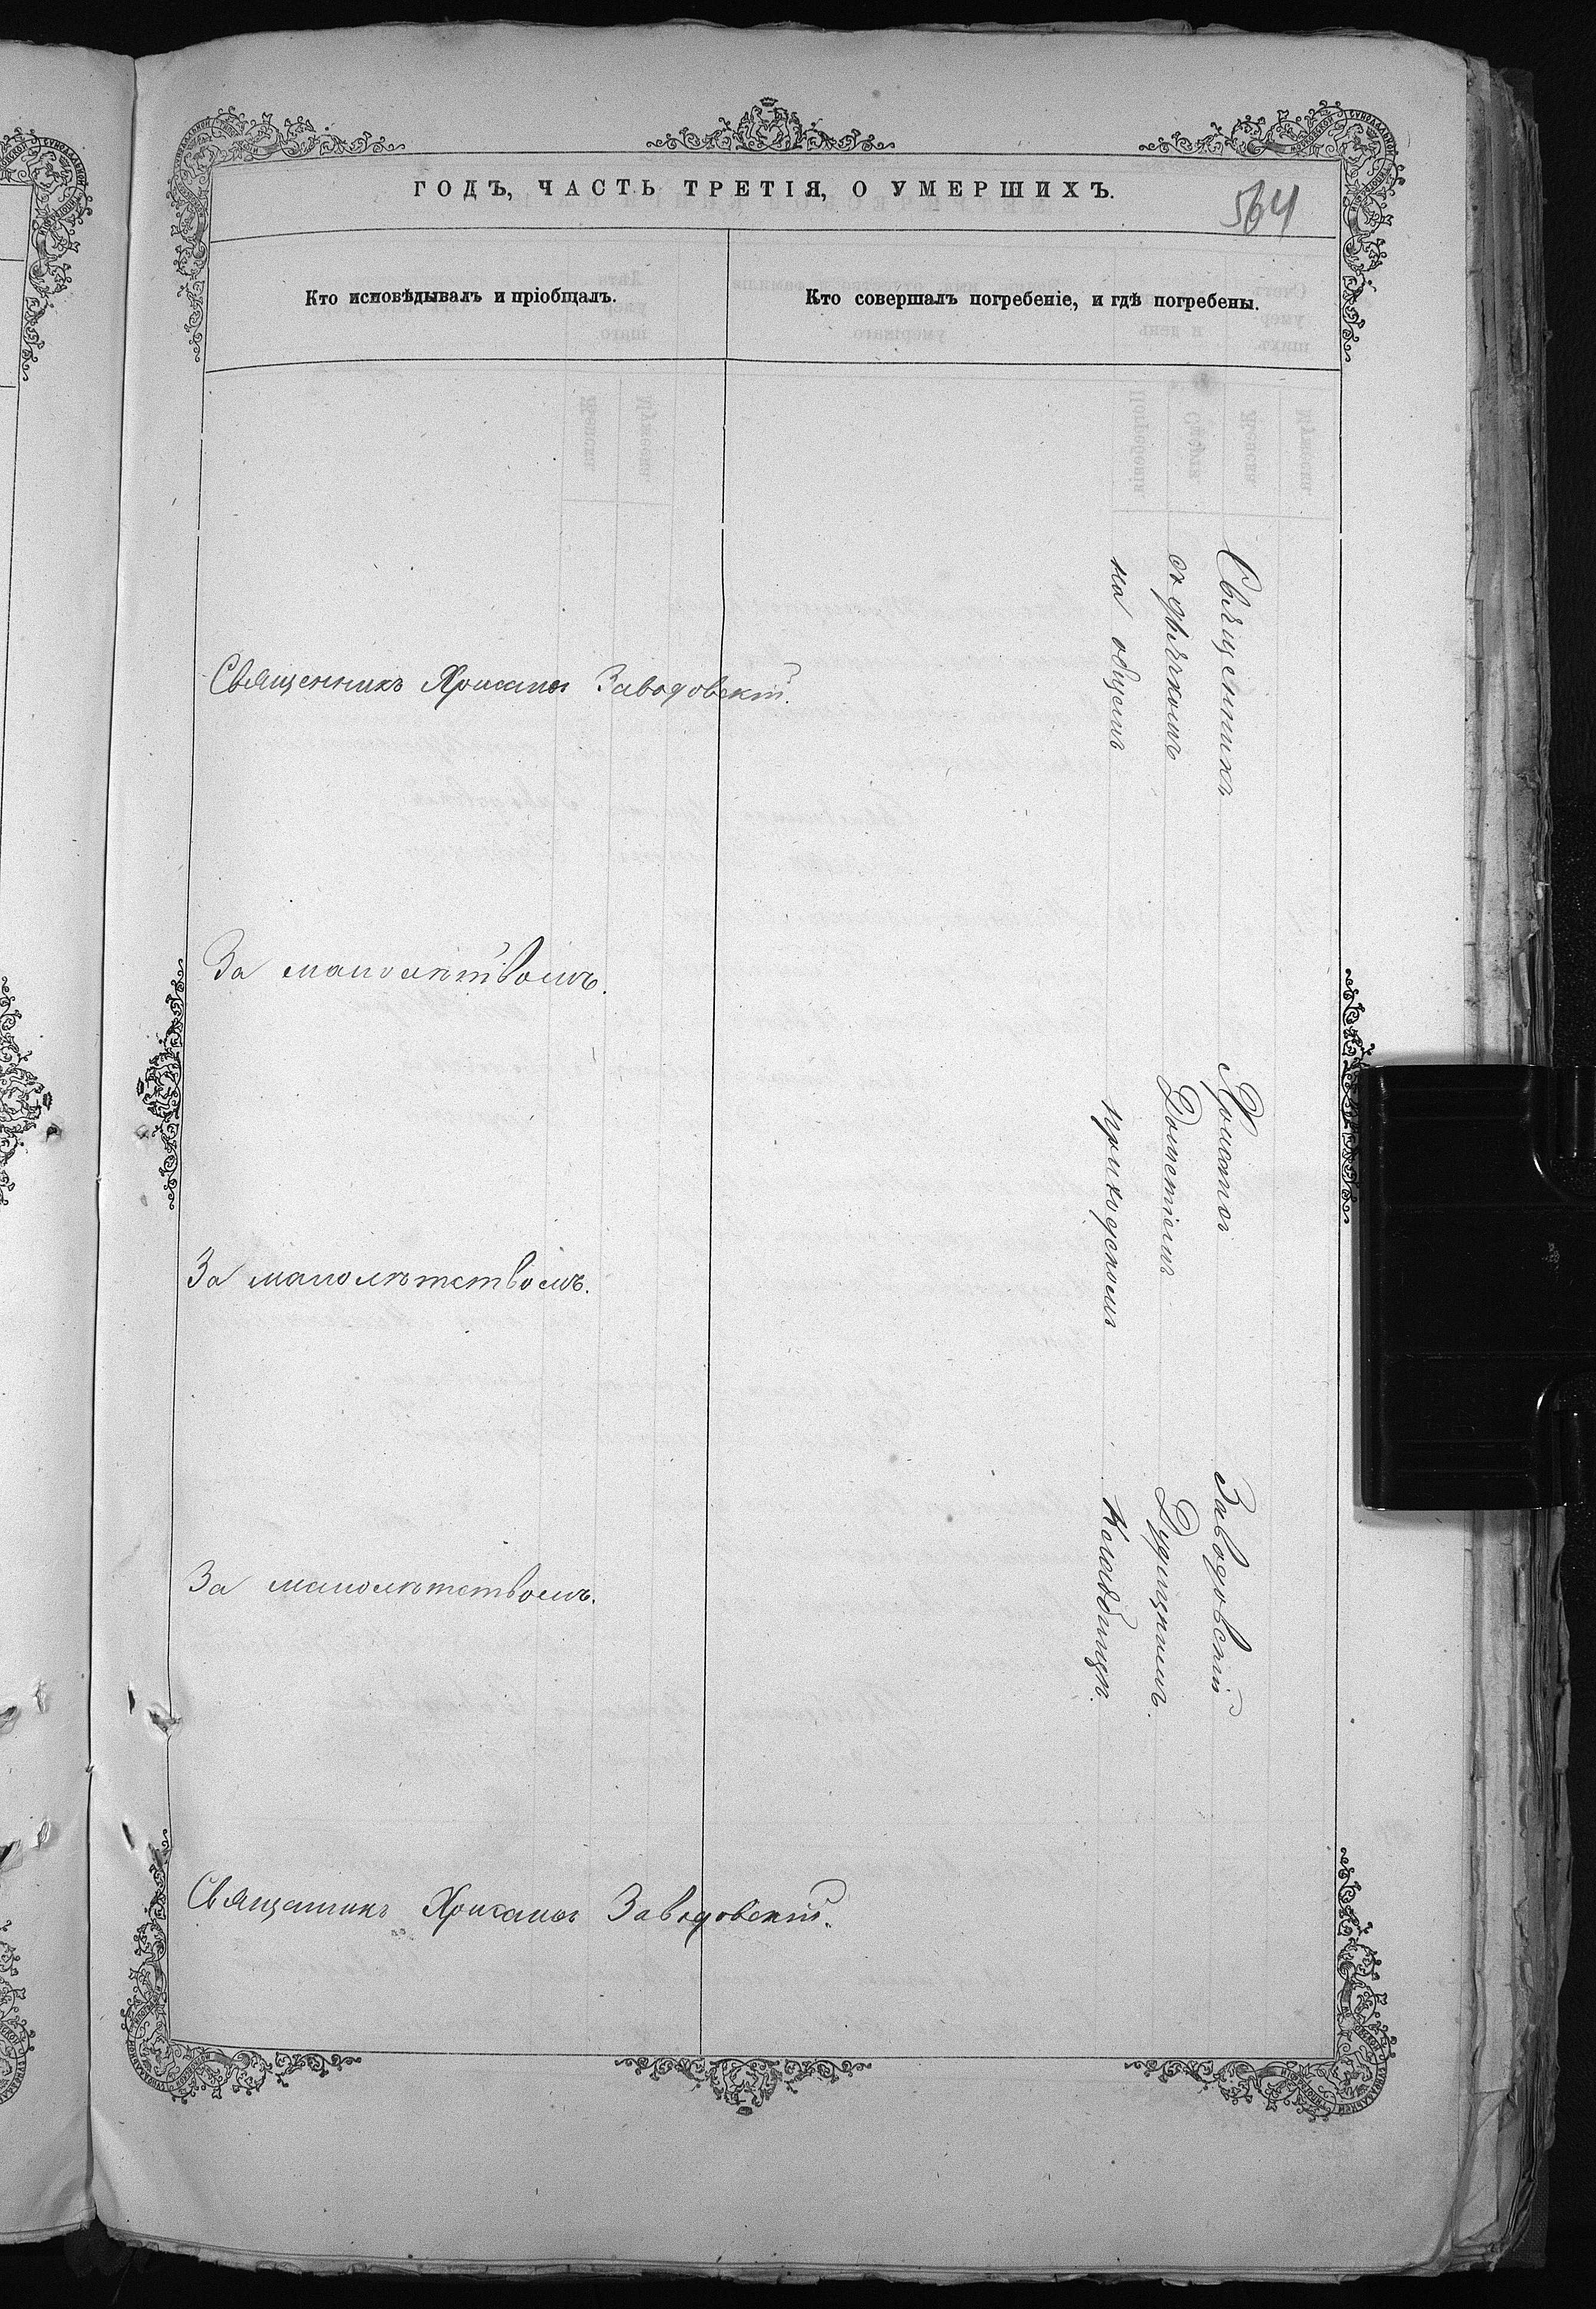 ГОДЪ, ЧАСТЬ ТРЕТІЯ, О УМЕРШИХЪ.
564
Кто исповѣдывалъ и пріобщалъ.
Кто совершалъ погребеніе, и гдѣ погребены.
Священникъ Хрисанѳъ Заводовскій.
За малолѣтвомъ.
За малолѣтствомъ.
За малолѣтствомъ.
Священникъ Хрисанѳъ Заводовскій.
Священникъ Хрисанѳъ Заводовскій
съ дьячкомъ Дудицкимъ.
на общемъ приходскомъ кладбищѣ.